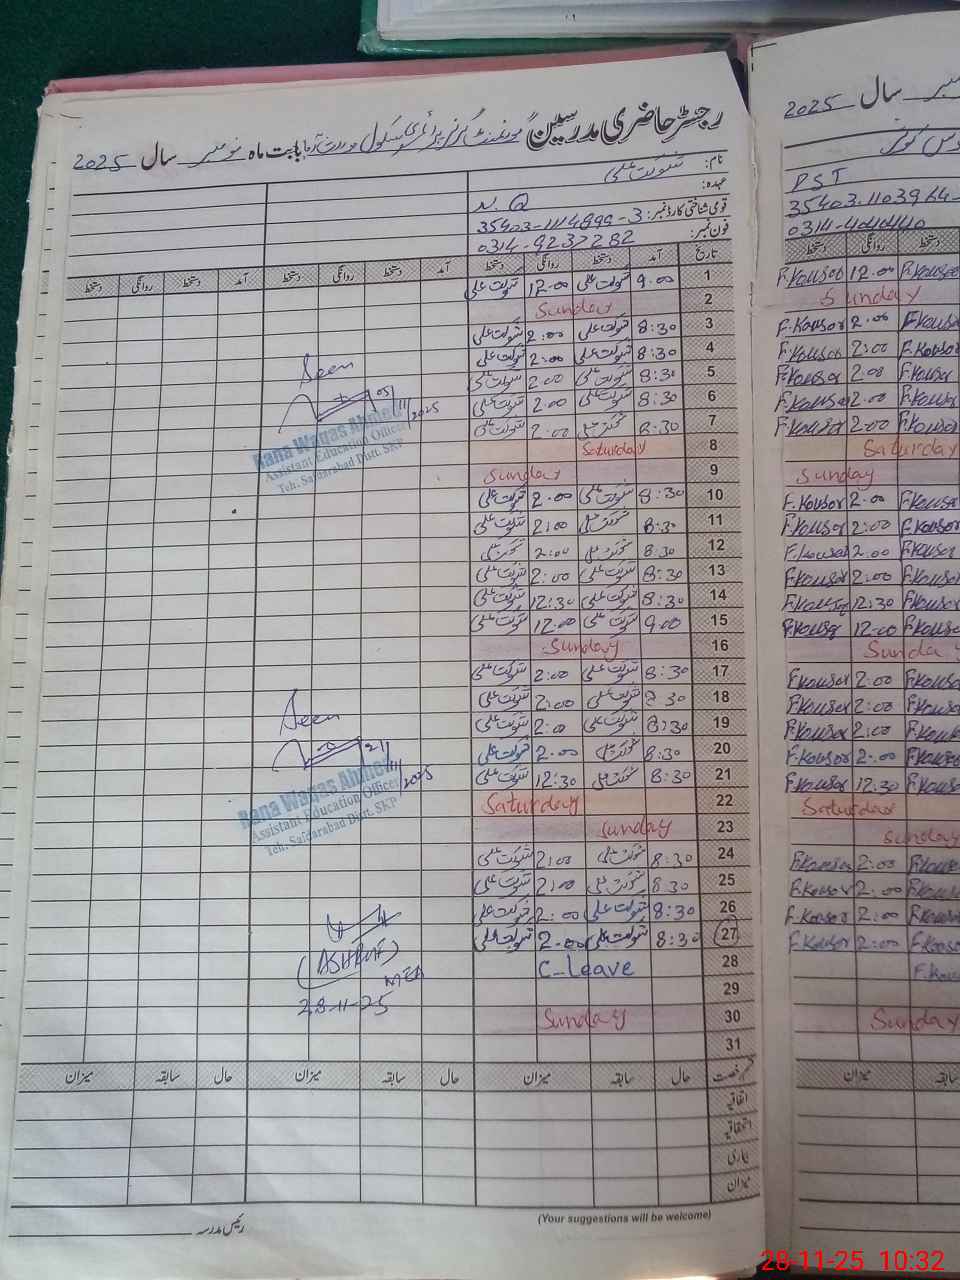 رجسٹر حاضری مدرسین گورنمنٹ گرلز پرائمری سکول بابت ماہ نومبر سال 2025
نام: شوکت علی
عہدہ: N.Q
قومی شناختی کارڈ نمبر: 35403-1114899-3
فون نمبر: 0314-9237282
تاریخ آمد دستخط روانگی دستخط آمد دستخط روانگی دستخط آمد دستخط روانگی دستخط
1 9.00 شوکت علی 12.00 شوکت علی
2 Sunday
3 8:30 شوکت علی 2:00 شوکت علی
4 8:30 شوکت علی 2:00 شوکت علی
5 8:30 شوکت علی 2:00 شوکت علی
6 8:30 شوکت علی 2.00 شوکت علی
7 8:30 شوکت علی 2:00 شوکت علی
8 Saturday
9 Sunday
10 8:30 شوکت علی 2.00 شوکت علی
11 8:30 شوکت علی 2:00 شوکت علی
12 8:30 شوکت علی 2:00 شوکت علی
13 8:30 شوکت علی 2:00 شوکت علی
14 8:30 شوکت علی 12:30 شوکت علی
15 9.00 شوکت علی 12.00 شوکت علی
16 Sunday
17 8:30 شوکت علی 2:00 شوکت علی
18 8:30 شوکت علی 2:00 شوکت علی
19 8:30 شوکت علی 2:00 شوکت علی
20 8:30 شوکت علی 2.00 شوکت علی
21 8:30 شوکت علی 12:30 شوکت علی
22 Saturday
23 Sunday
24 8:30 شوکت علی 2:00 شوکت علی
25 8:30 شوکت علی 2:00 شوکت علی
26 8:30 شوکت علی 2:00 شوکت علی
27 8:30 شوکت علی 2.00 شوکت علی
28 C-Leave
29
30 Sunday
31
Seen
05/11/2025
Rana Waqas Ahmed
Assistant Education Officer
Teh. Safdarabad Distt. SKP
Seen
21/11/2025
Rana Waqas Ahmed
Assistant Education Officer
Teh. Safdarabad Distt. SKP
(ASHRAF)
MEA
28-11-25
رخصت حال سابقہ میزان حال سابقہ میزان حال سابقہ میزان
اتفاقیہ
استحقاقیہ
بیماری
میزان
(Your suggestions will be welcome)
رئیس مدرسہ
سال 2025
PST
35403-1103964-
دستخط روانگی دستخط
F.Kousar 12.00 F.Kousar
Sunday
F.Kousar 2.00 F.Kousar
F.Kousar 2:00 F.Kousar
F.Kousar 2.00 F.Kousar
F.Kousar 2.00 F.Kousar
F.Kousar 2.00 F.Kousar
Saturday
Sunday
F.Kousar 2.00 F.Kousar
F.Kousar 2:00 F.Kousar
F.Kousar 2.00 F.Kousar
F.Kousar 2:00 F.Kousar
F.Kousar 12:30 F.Kousar
F.Kousar 12.00 F.Kousar
Sunday
F.Kousar 2.00 F.Kousar
F.Kousar 2:00 F.Kousar
F.Kousar 2:00 F.Kousar
F.Kousar 2.00 F.Kousar
F.Kousar 12.30 F.Kousar
Saturday
Sunday
F.Kousar 2.00 F.Kousar
F.Kousar 2.00 F.Kousar
F.Kousar 2:00 F.Kousar
F.Kousar 2:00 F.Kousar
F.Kous
Sunday
سابقہ میزان
28-11-25 10:32